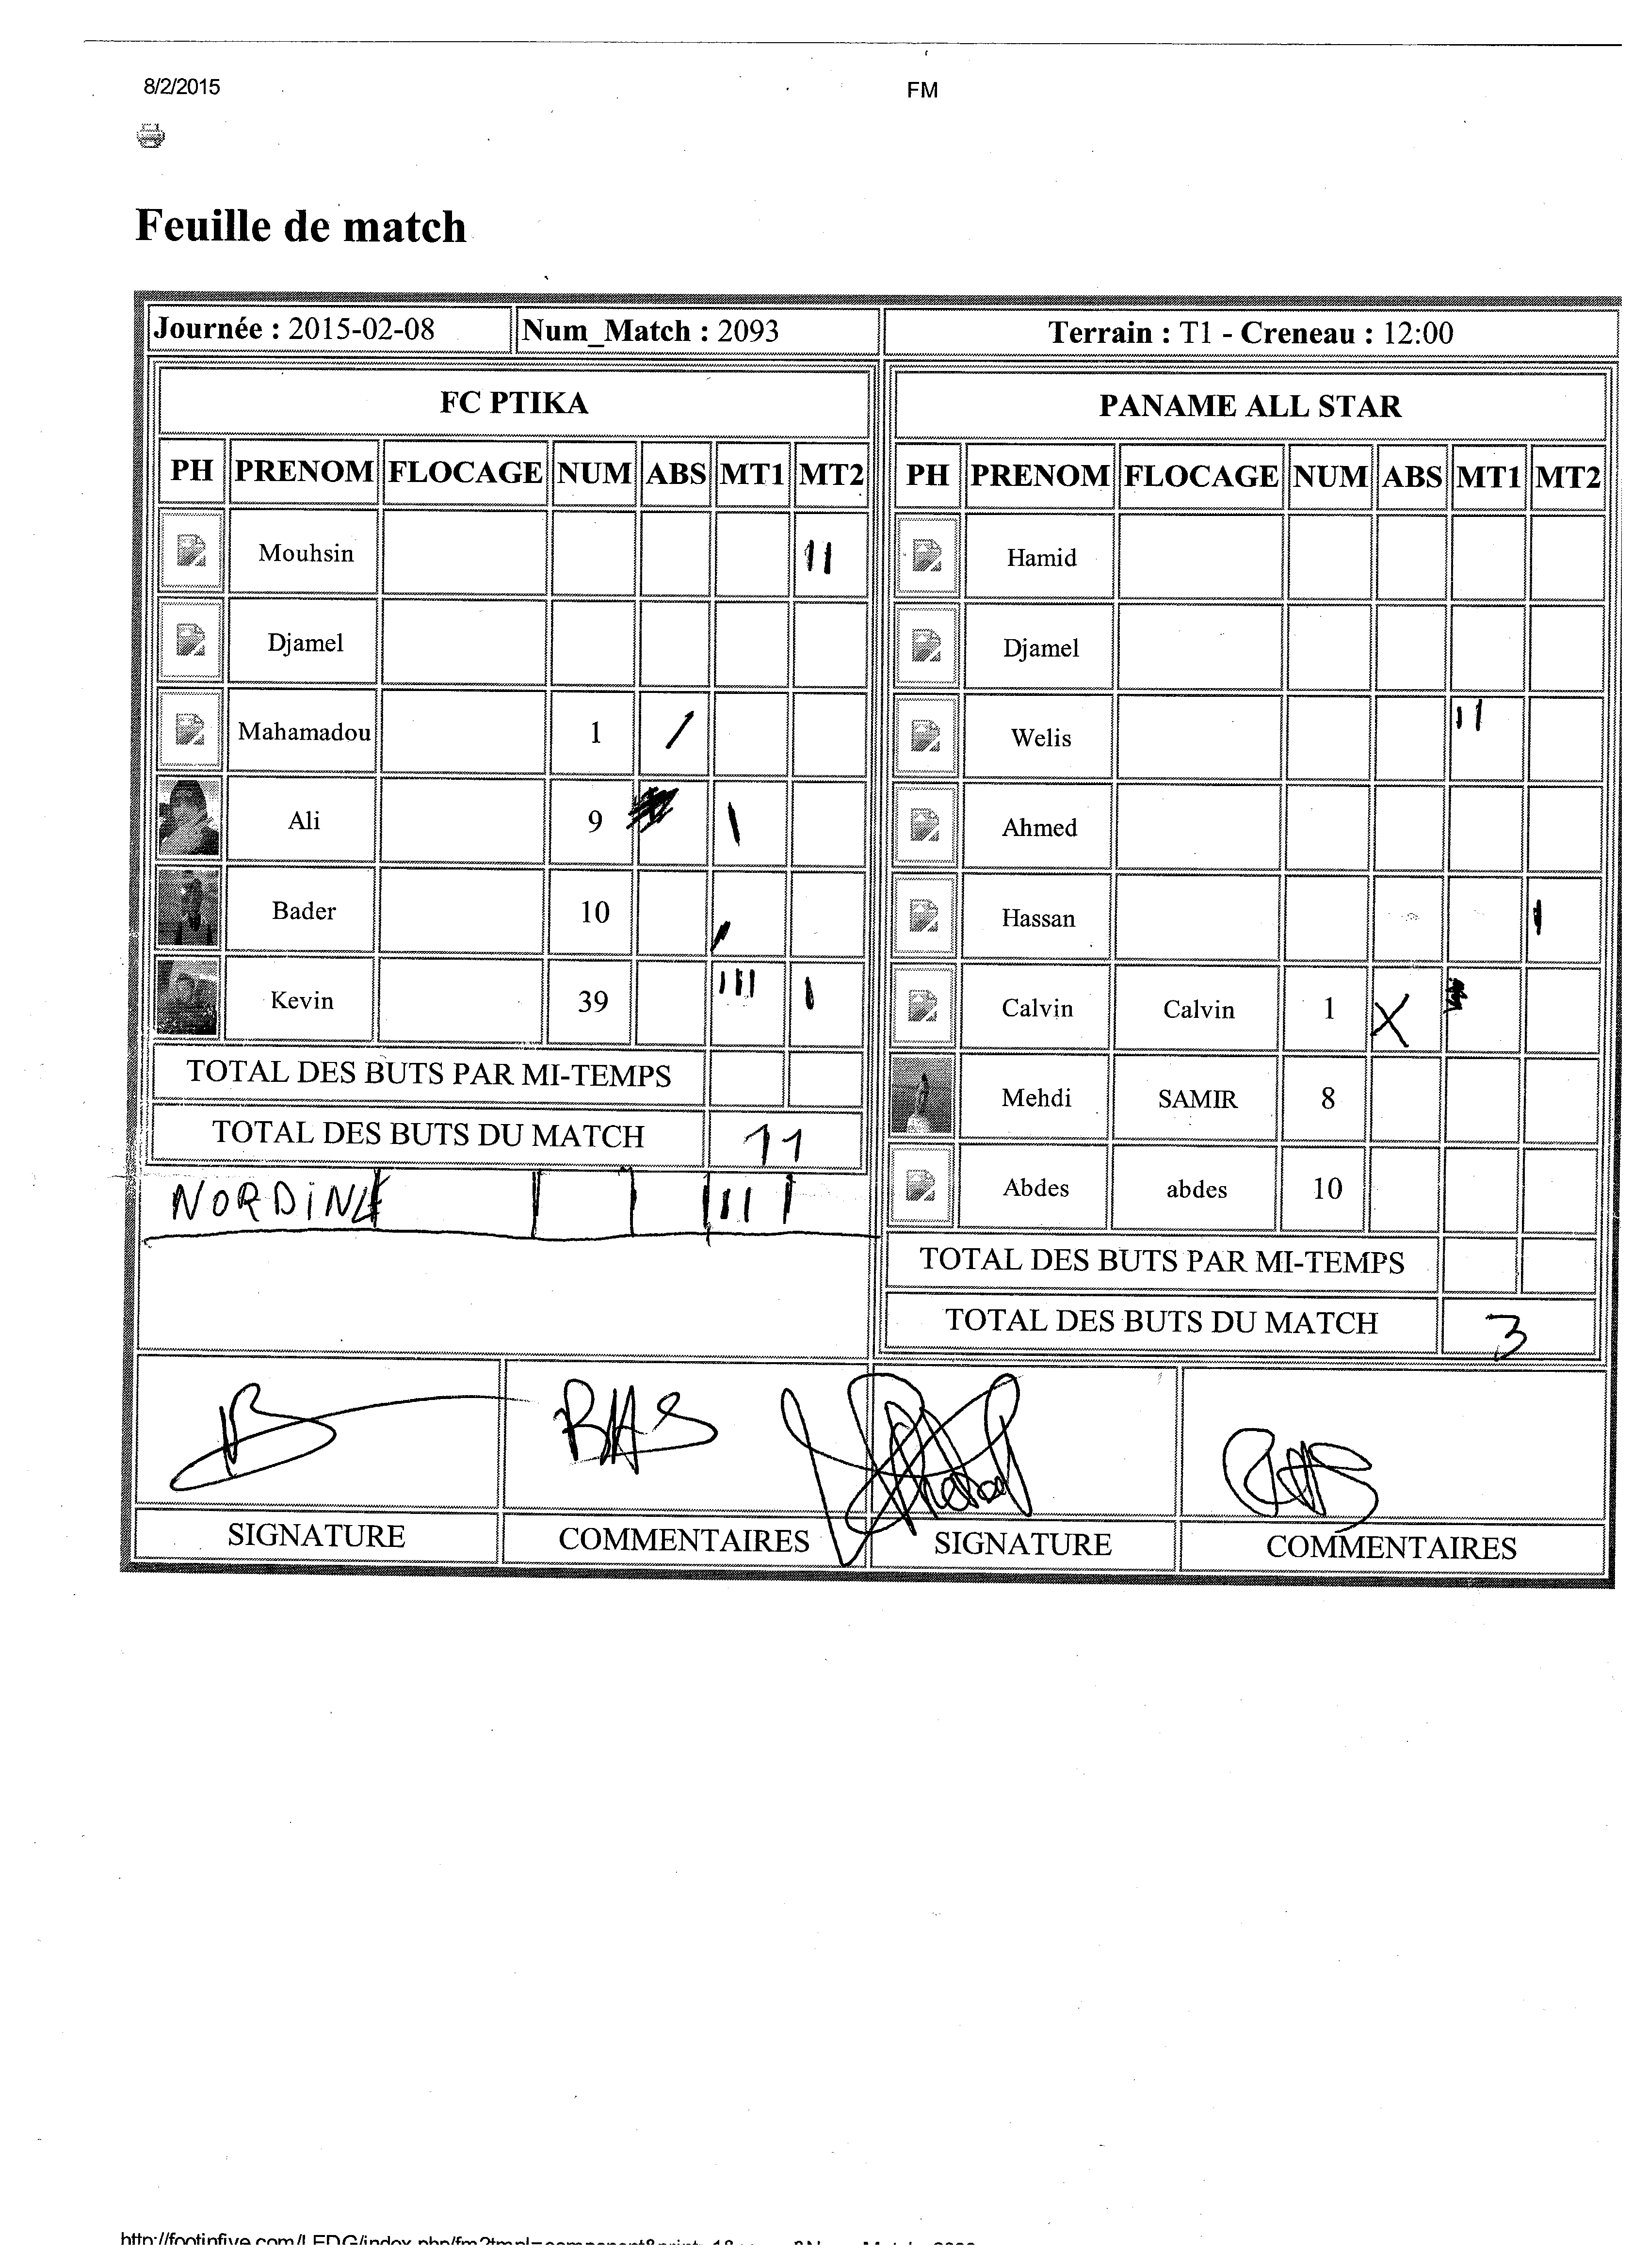 8/2/2015 FM
Feuille de match
Journée : 2015-02-08 Num_Match : 2093 Terrain : T1 - Creneau : 12:00
FC PTIKA
PH PRENOM FLOCAGE NUM ABS MT1 MT2
Mouhsin II
Djamel
Mahamadou 1 /
Ali 9 I
Bader 10 I
Kevin 39 III I
TOTAL DES BUTS PAR MI-TEMPS
TOTAL DES BUTS DU MATCH 11
NORDINE
PANAME ALL STAR
PH PRENOM FLOCAGE NUM ABS MT1 MT2
Hamid
Djamel
Welis II
Ahmed
Hassan I
Calvin Calvin 1 X
Mehdi SAMIR 8
Abdes abdes 10
TOTAL DES BUTS PAR MI-TEMPS
TOTAL DES BUTS DU MATCH 3
RAS RAS
SIGNATURE COMMENTAIRES SIGNATURE COMMENTAIRES